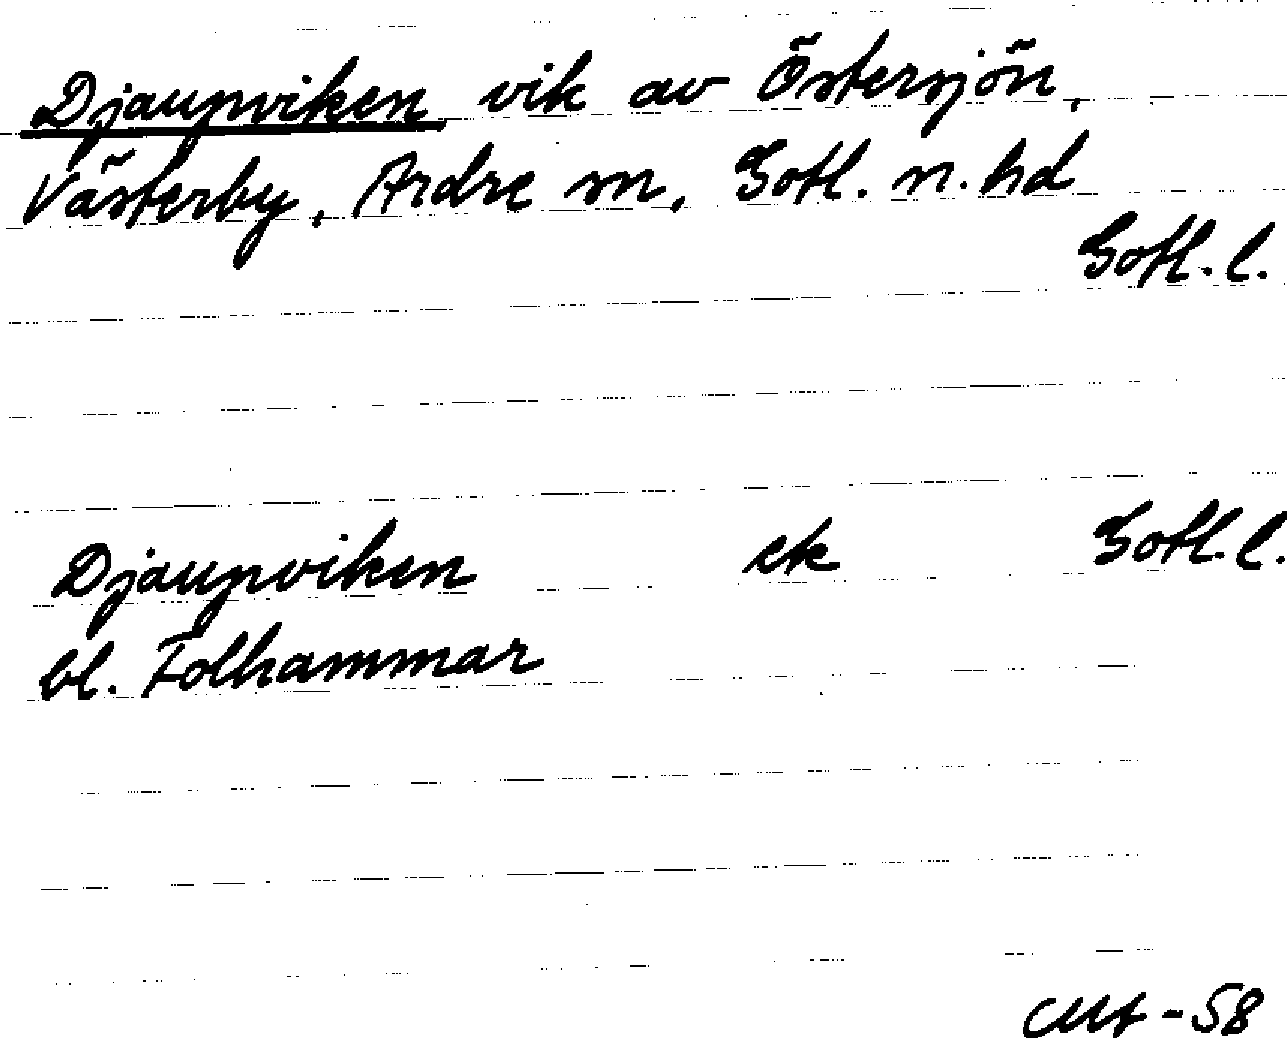 Djaupviken vik av Östersjön,
Västerby, Ardre sn, Gotl. n. hd
Gotl. l.
Djaupviken ek Gotl. l.
bl. Folhammar
-58